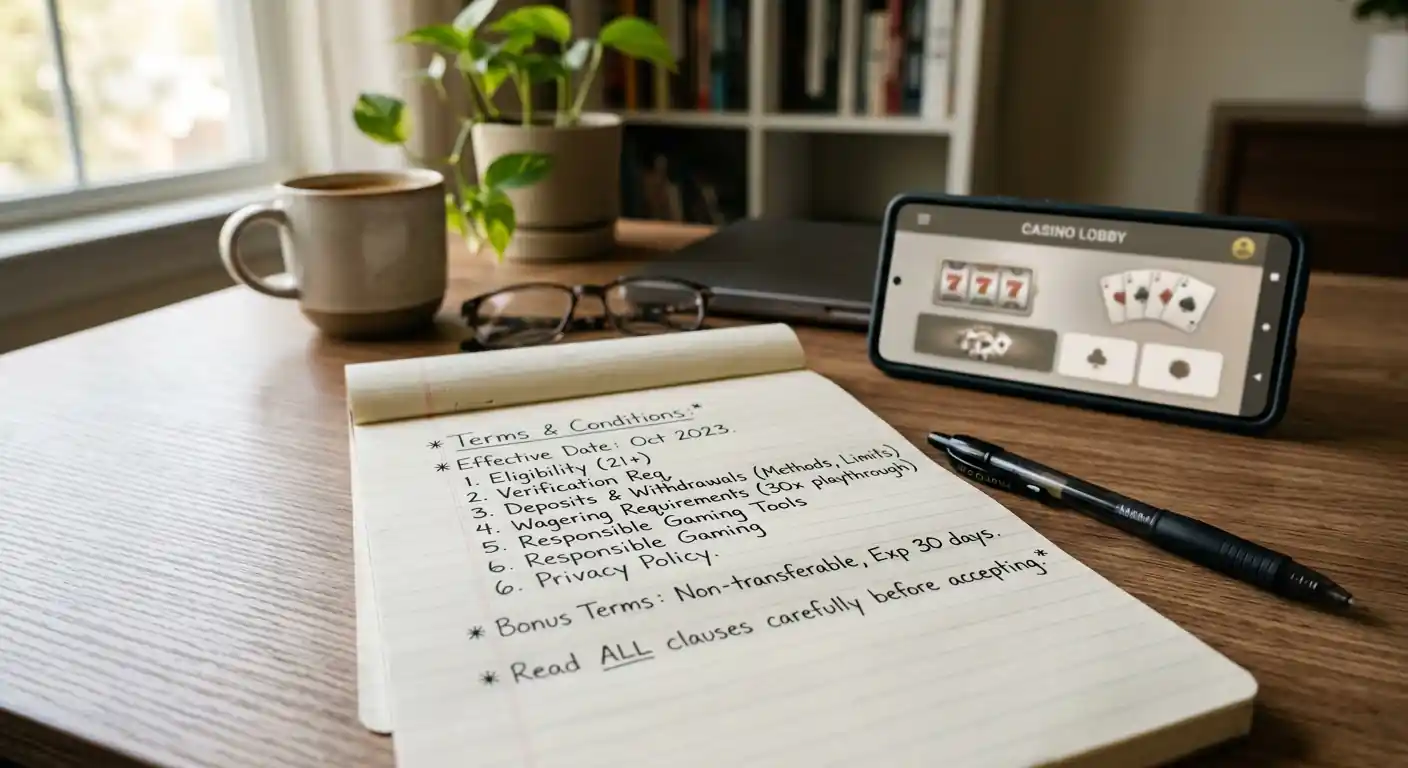 * Terms & Conditions:*
* Effective Date: Oct 2023.
1. Eligibility (21+)
2. Verification Req
3. Deposits & Withdrawals (Methods, Limits)
4. Wagering Requirements (30x playthrough)
5. Responsible Gaming Tools
6. Responsible Gaming
6. Privacy Policy.
* Bonus Terms: Non-transferable, Exp 30 days.
* Read ALL clauses carefully before accepting.*
CASINO LOBBY
7 7 7